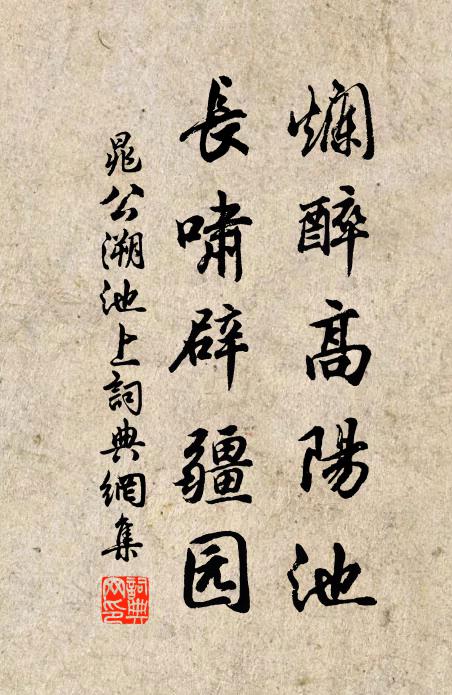 爛醉高陽池
長嘯辟疆园
晁公溯池上詞典網集